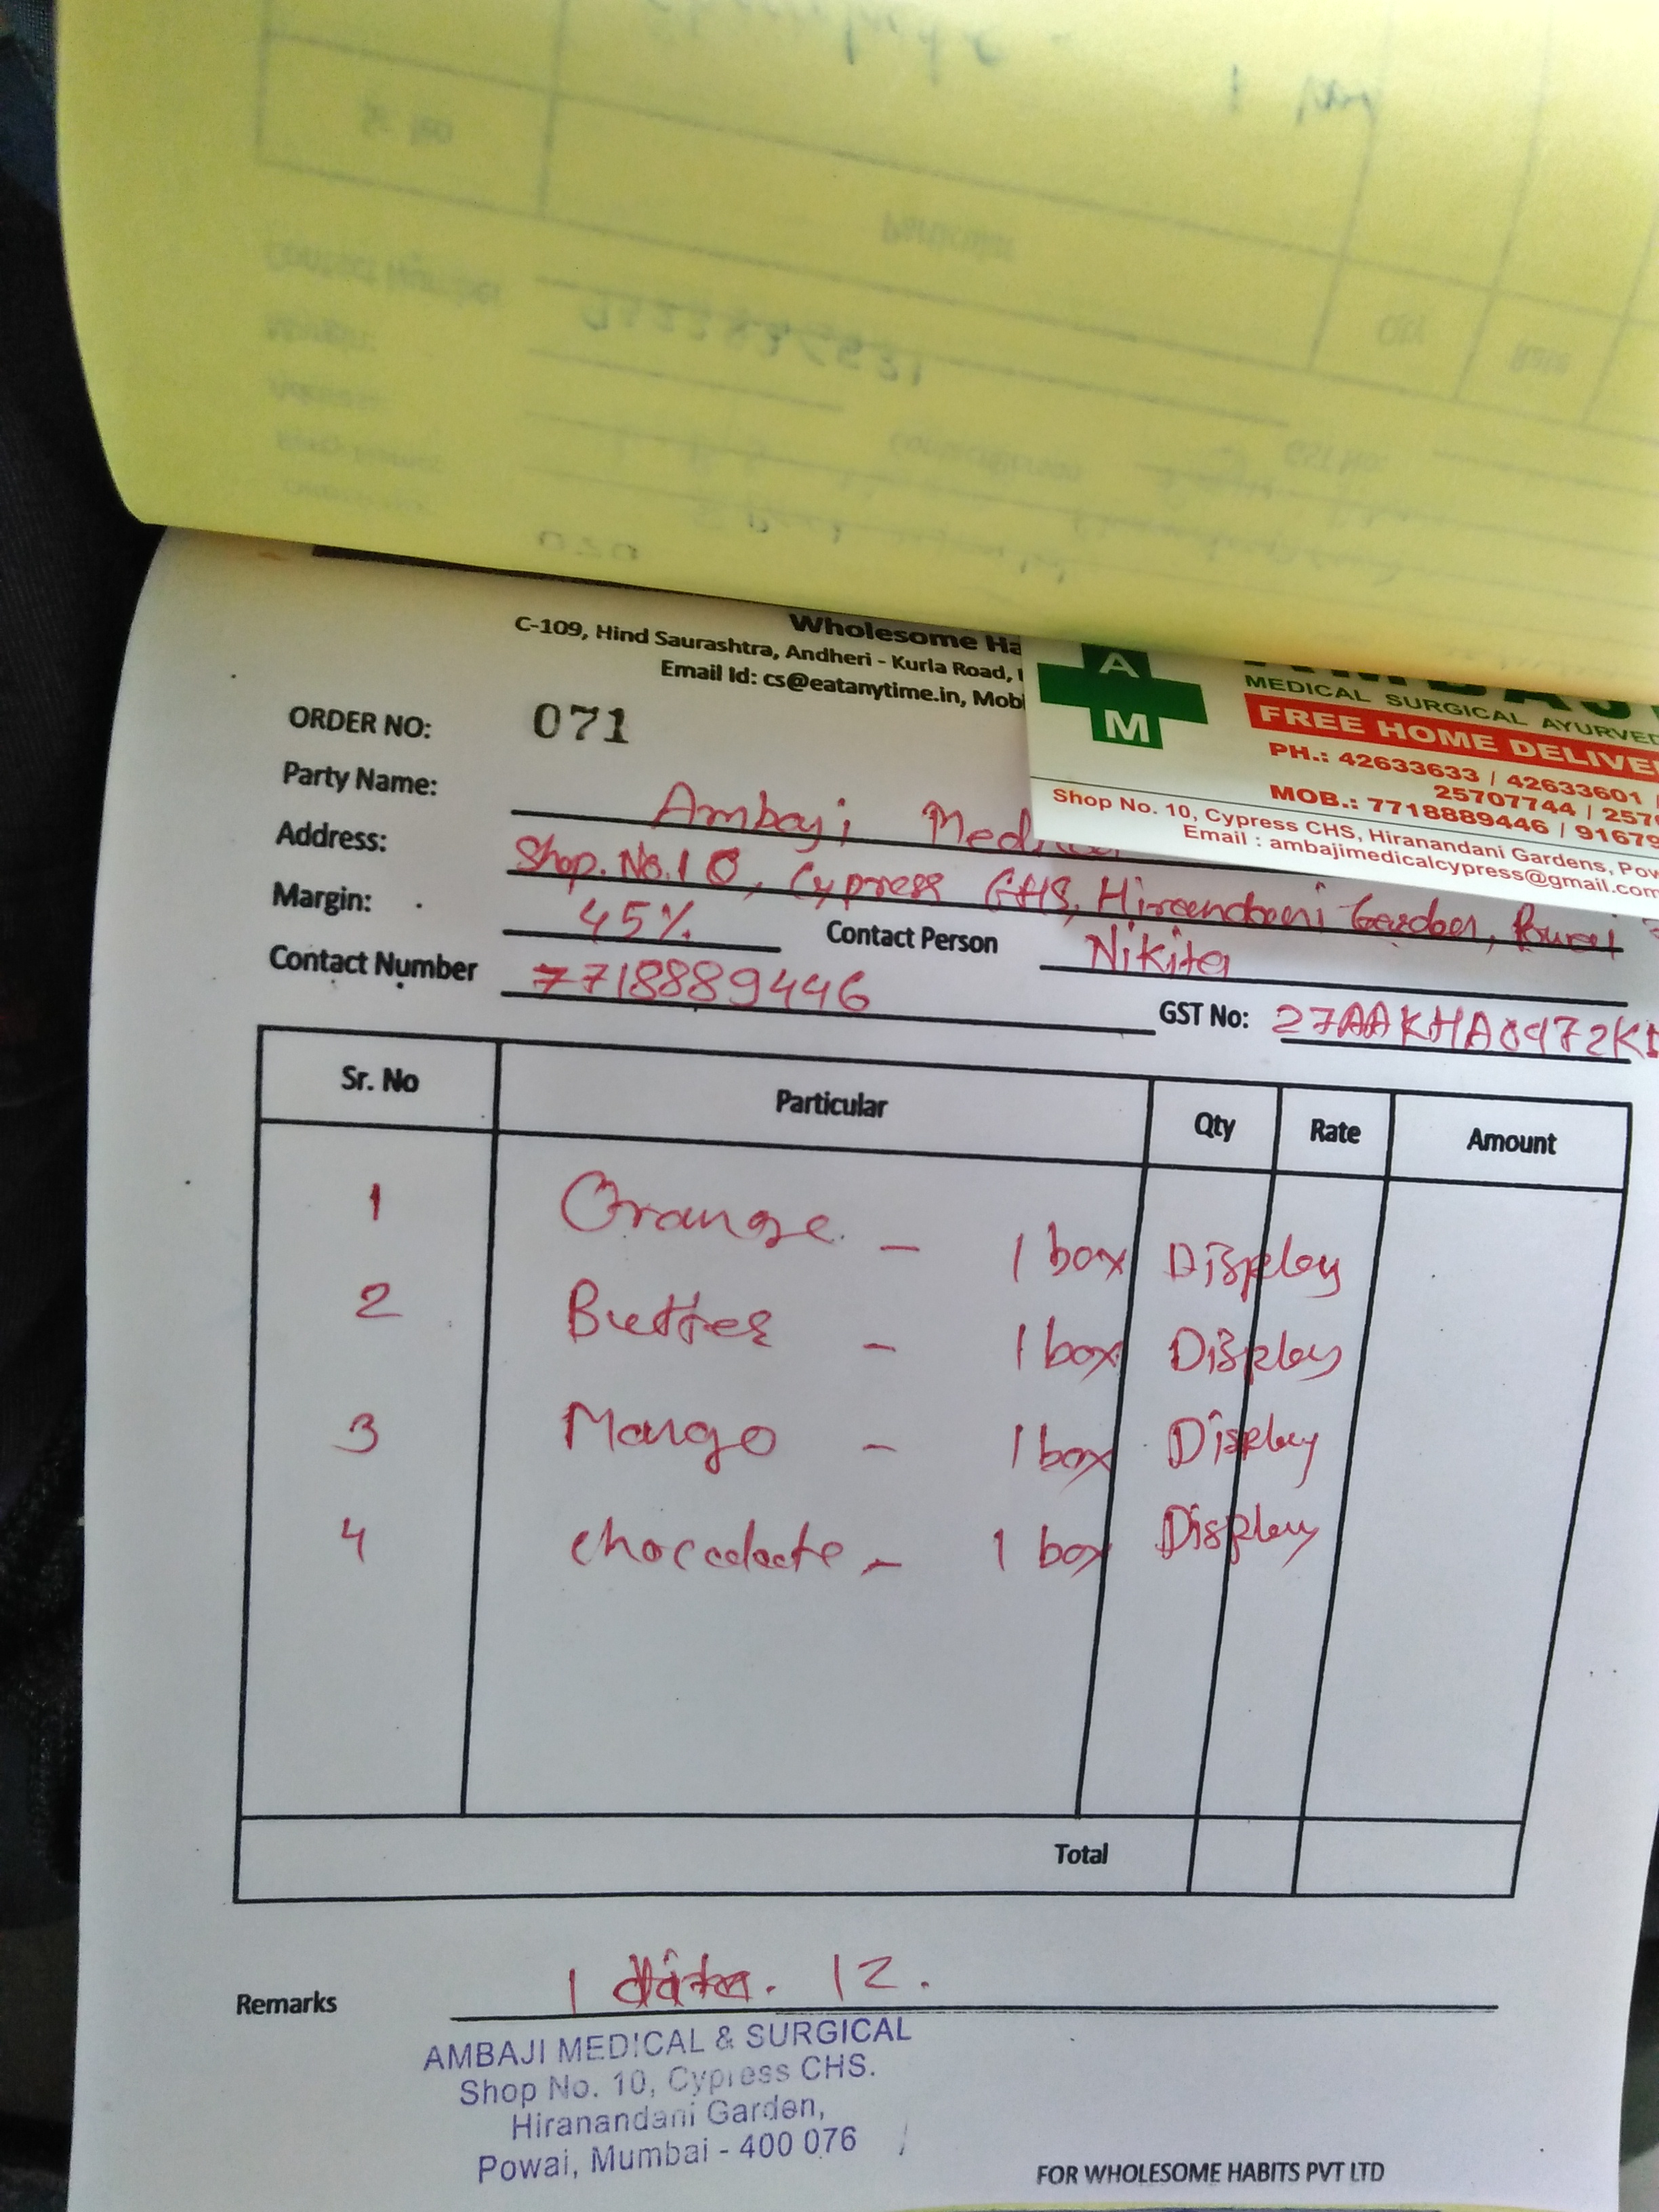 Wholesome Ha
C-109, Hind Saurashtra, Andheri - Kurla Road,
Email Id: cs@eatanytime.in, Mob
A
M
MEDICAL SURGICAL AYURVED
FREE HOME DELIVE
PH.: 42633633 / 42633601 /
25707744 / 257
MOB.: 7718889446 / 9167
Shop No. 10, Cypress CHS, Hiranandani Gardens, Pow
Email : ambajimedicalcypress@gmail.com
ORDER NO: 071
Party Name: Ambaji Medical
Address: Shop. No. 10, Cypress CHS, Hiranandani Garden, Powai
Margin: 45% Contact Person Nikita
Contact Number 7718889446 GST No: 27AAKHA0972K
Sr. No Particular Qty Rate Amount
1 Orange - 1 box Display
2 Butter - 1 box Display
3 Mango - 1 box Display
4 chocolate - 1 box Display
Total
Remarks 1 12.
AMBAJI MEDICAL & SURGICAL
Shop No. 10, Cypress CHS.
Hiranandani Garden,
Powai, Mumbai - 400 076
FOR WHOLESOME HABITS PVT LTD